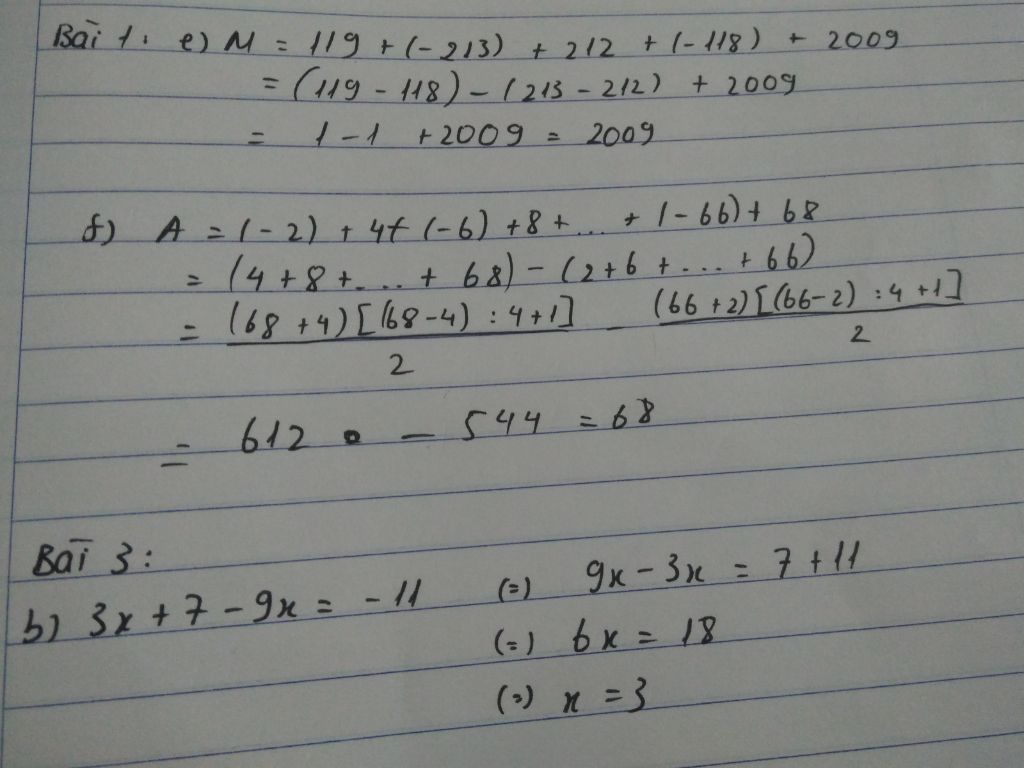 Bài 1: e) M = 119 + (-213) + 212 + (-118) + 2009
= (119 - 118) - (213 - 212) + 2009
= 1 - 1 + 2009 = 2009
f) A = (-2) + 4 + (-6) + 8 + ... + (-66) + 68
= (4 + 8 + ... + 68) - (2 + 6 + ... + 66)
= (68 + 4)[(68 - 4) : 4 + 1] / 2 - (66 + 2)[(66 - 2) : 4 + 1] / 2
= 612 - 544 = 68
Bài 3:
b) 3x + 7 - 9x = -11 (=) 9x - 3x = 7 + 11
(=) 6x = 18
(=) x = 3